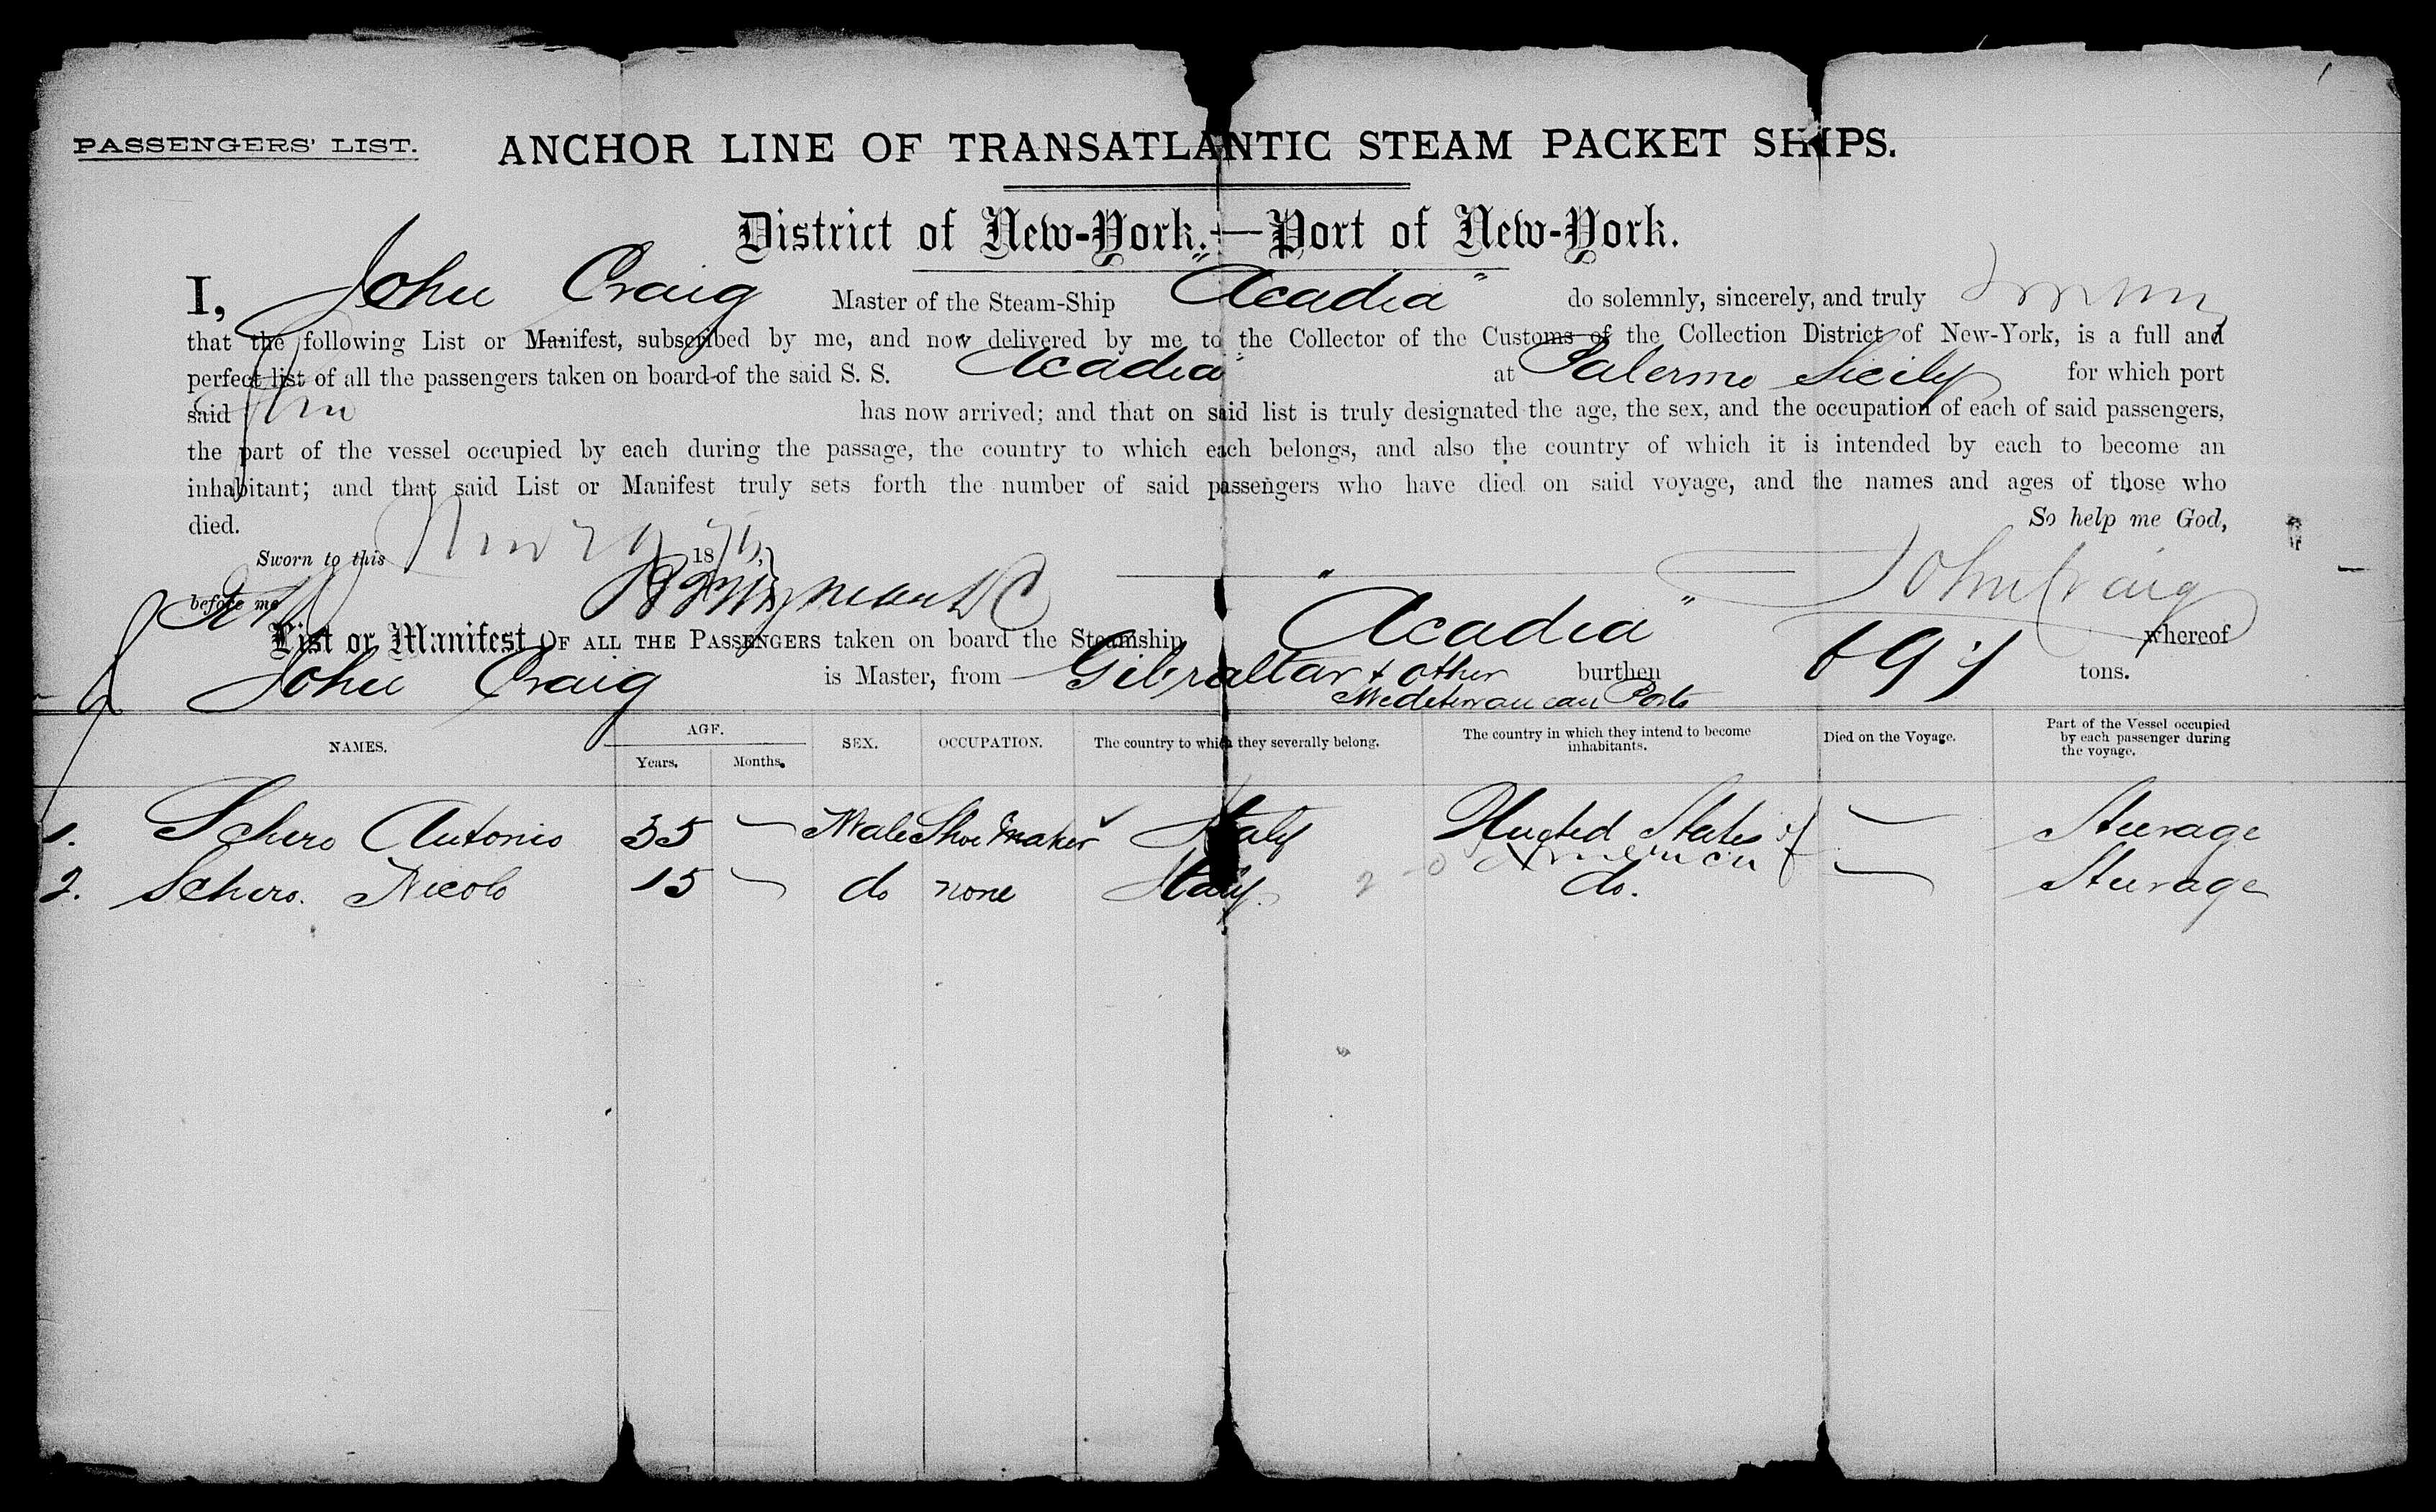 PASSENGERS' LIST.
ANCHOR LINE OF TRANSATLANTIC STEAM PACKET SHIPS.
District of New-York.—Port of New-York.
I, John Craig Master of the Steam-Ship "Acadia" do solemnly, sincerely, and truly
that the following List or Manifest, subscribed by me, and now delivered by me to the Collector of the Customs of the Collection District of New-York, is a full and
perfect list of all the passengers taken on board of the said S. S. "Acadia" at Palermo Sicily for which port
said has now arrived; and that on said list is truly designated the age, the sex, and the occupation of each of said passengers,
the part of the vessel occupied by each during the passage, the country to which each belongs, and also the country of which it is intended by each to become an
inhabitant; and that said List or Manifest truly sets forth the number of said passengers who have died on said voyage, and the names and ages of those who
died. So help me God,
Sworn to this 18
before me John Craig
List or Manifest OF ALL THE PASSENGERS taken on board the Steamship "Acadia" whereof
John Craig is Master, from Gibraltar + other burthen tons.
Mediterranean Ports
NAMES. AGE. SEX. OCCUPATION. The country to which they severally belong. The country in which they intend to become inhabitants. Died on the Voyage. Part of the Vessel occupied by each passenger during the voyage.
Years. Months.
1. Schiro Antonio 35 — Male Shoe maker Italy United States of — Steerage
America
2. Schiro. Nicolo 15 — do none Italy. do. — Steerage